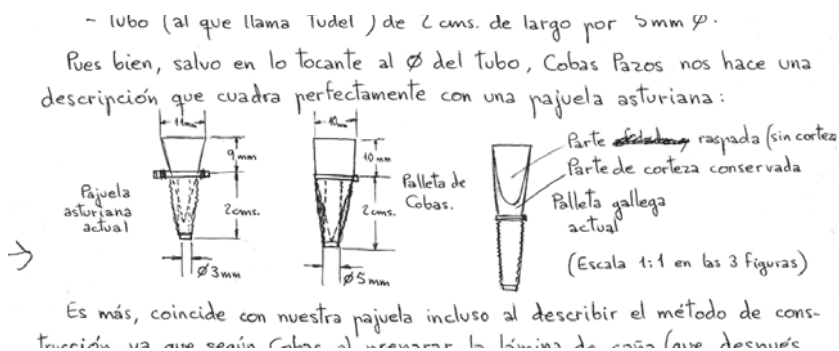 - Tubo (al que llama Tudel) de 2 cms. de largo por 5mm Ø.
Pues bien, salvo en lo tocante al Ø del tubo, Cobas Pazos nos hace una
descripción que cuadra perfectamente con una pajuela asturiana:
11mm
9mm
Pajuela
asturiana
actual
2cms.
Ø3mm
10mm
10mm
Palleta de
Cobas.
2cms.
Ø5mm
Parte raspada (sin corteza
Parte de corteza conservada
Palleta gallega
actual
(Escala 1:1 en las 3 figuras)
Es más, coincide con nuestra pajuela incluso al describir el método de cons-
trucción, ya que según Cobas al preparar la lámina de caña (que después